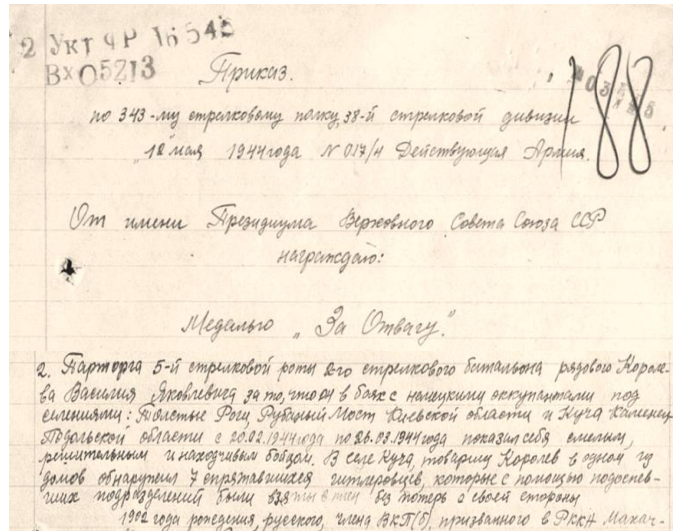 2 Укт ФР 16545
Вх 05213
Приказ.
188
по 343-му стрелковому полку, 38-й стрелковой дивизии
"12 мая 1944 года N 017/н Действующая Армия.
От имени Президиума Верховного Совета Союза ССР
награждаю:
Медалью „За Отвагу".
2. Парторга 5-й стрелковой роты 2го стрелкового батальона рядового Короле-
ва Василия Яковлевича за то, что он в боях с немецкими оккупантами под
селениями: Толстые Роги, Рубаный Мост Киевской области и Куча Каменец-
Подольской области с 20.02.1944 года по 26.03.1944 года показал себя смелым,
решительным и находчивым бойцом. В селе Куча, товарищ Королев в одном из
домов обнаружил 7 спрятавшихся гитлеровцев, которые с помощью подоспев-
ших подразделений были взяты в плен без потерь с своей стороны
1902 года рождения, русского, члена ВКП(б), призванного в РККА Махач-